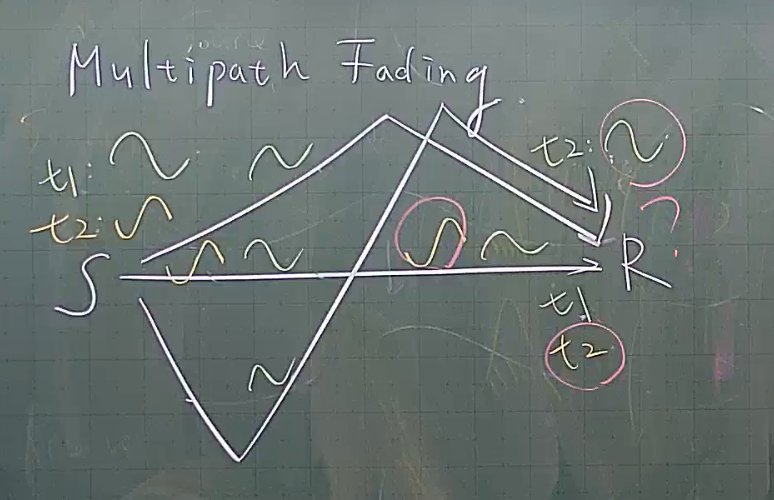 Multipath Fading
t1:
t2:
t2:
?
S
R
t1
t2